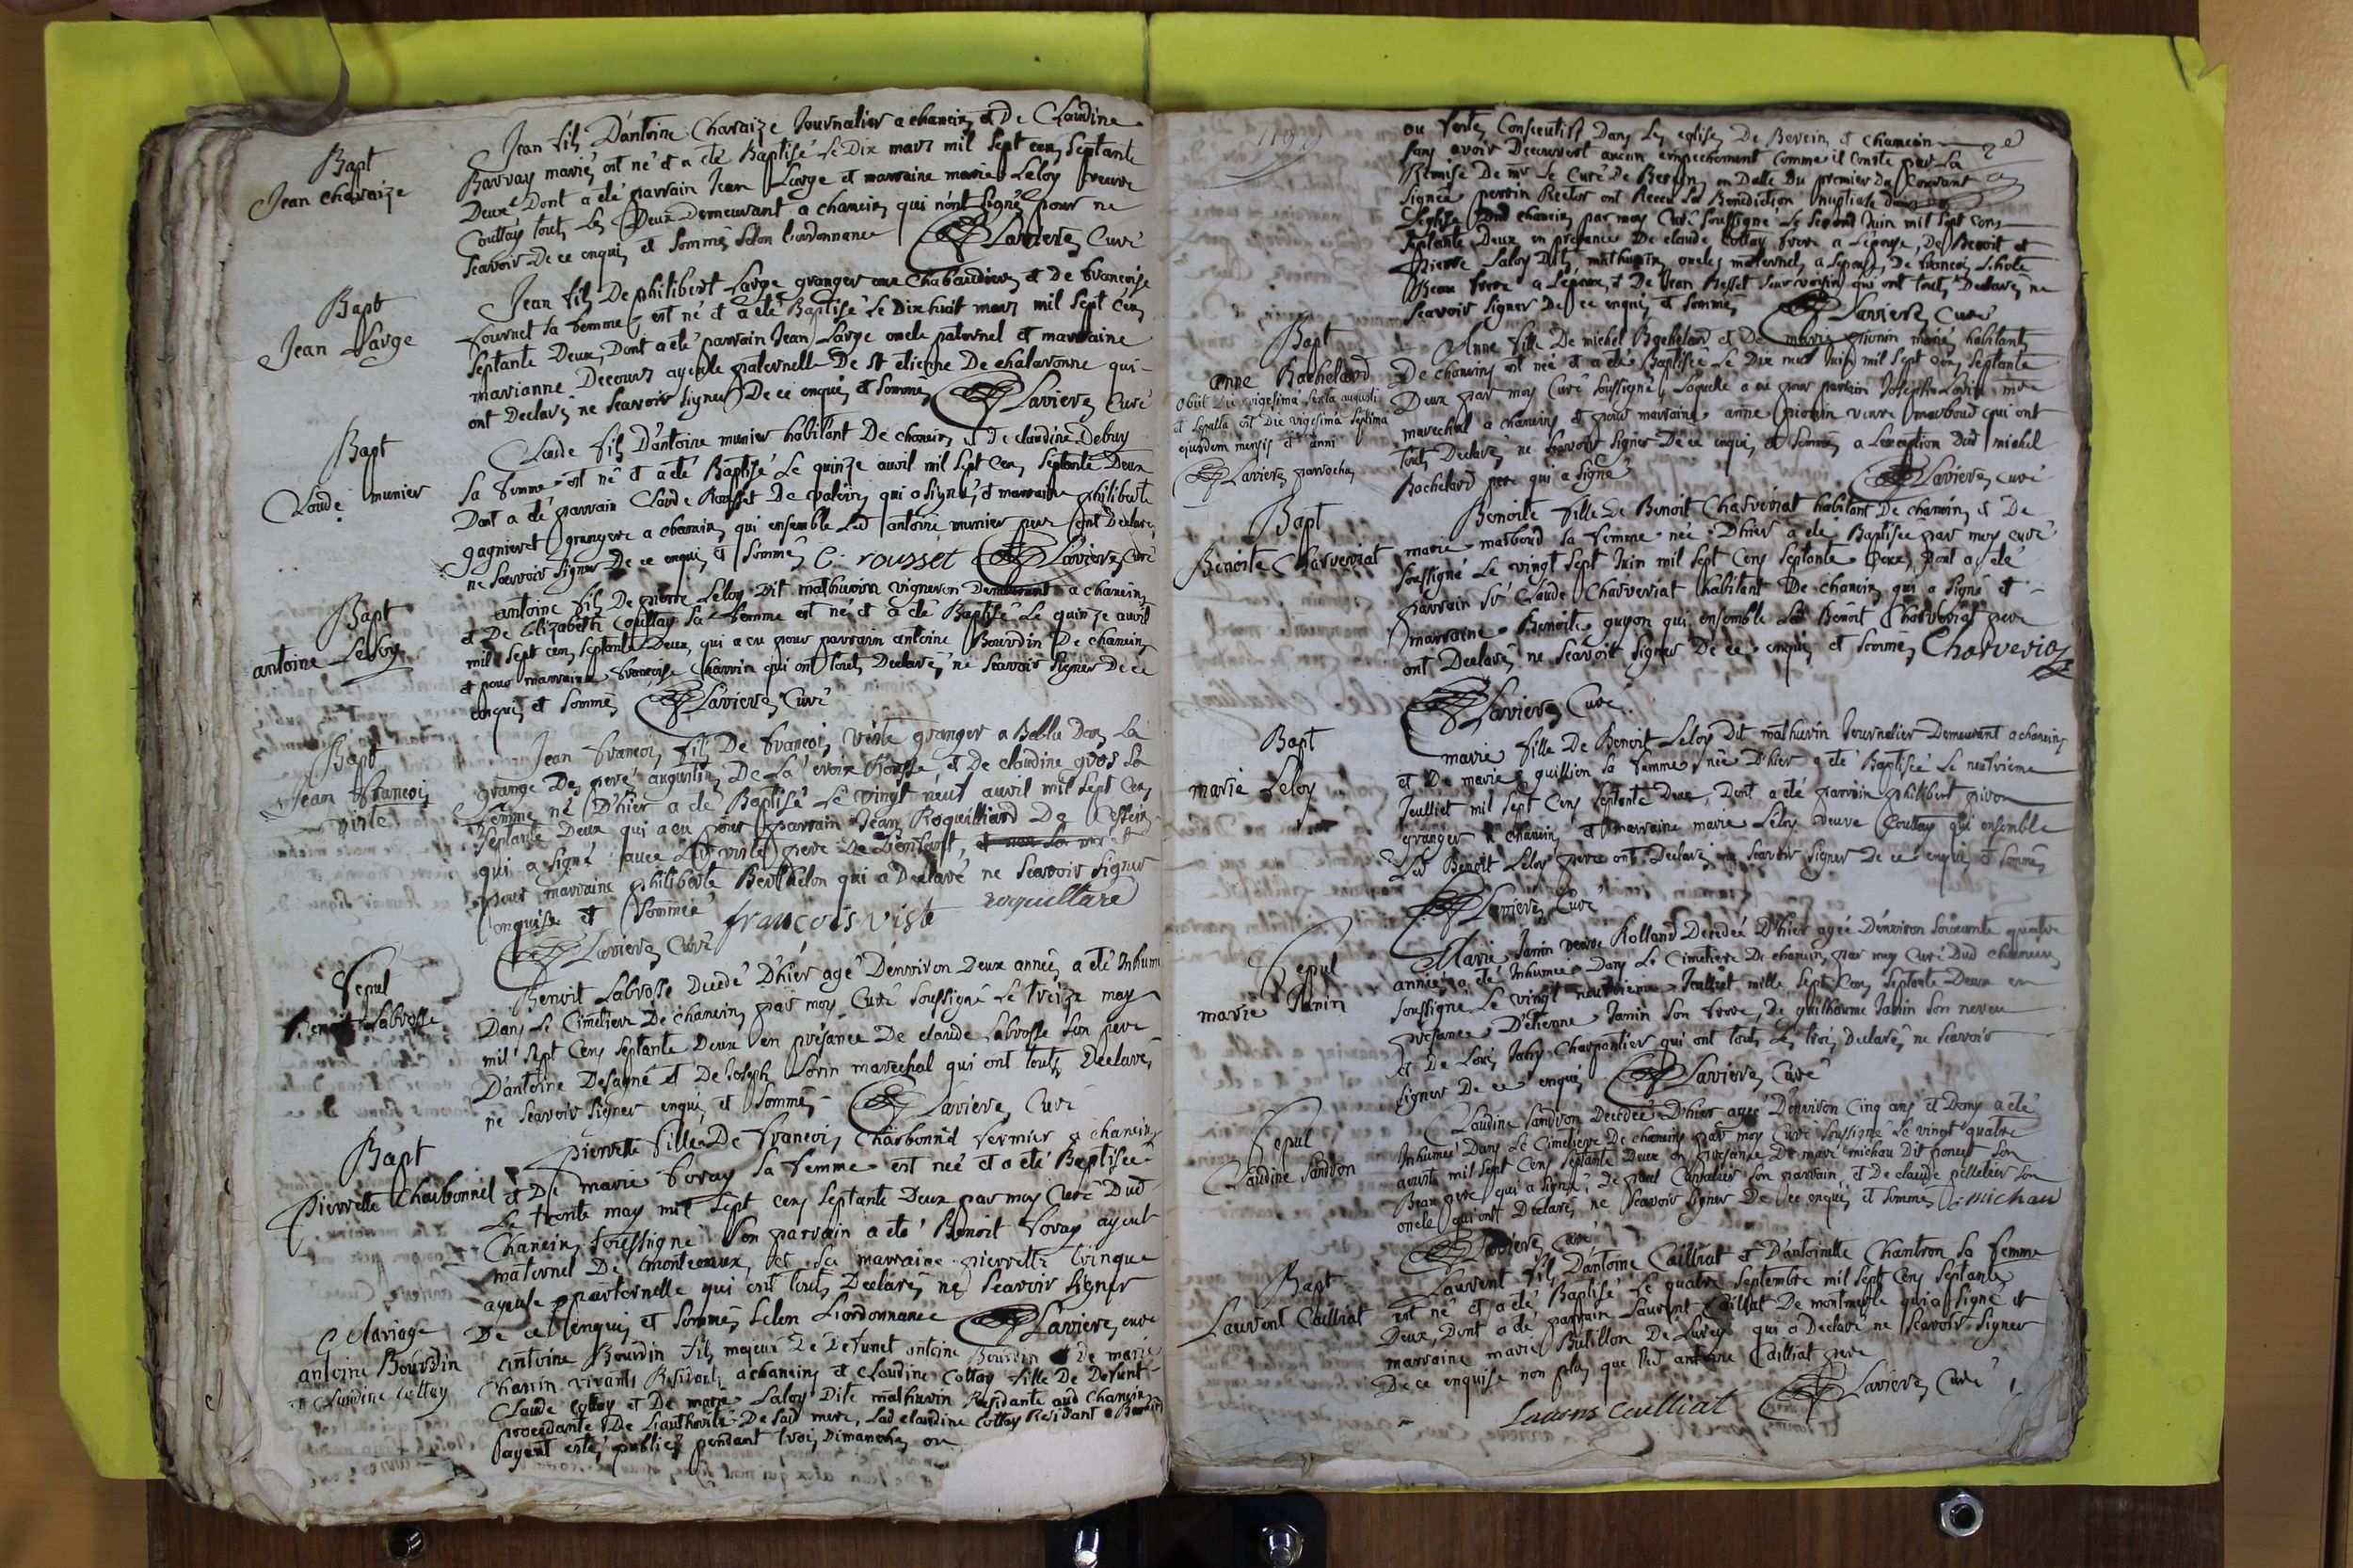 Bapt
Jean Charaize
Jean fils D'antoine Charaize Journalier a chanein et De Claudine
Barray mariés est né et a eté Baptisé Le Dix mars mil sept cens septante
Deux Dont a été parrain Jean Large et marraine marie Leloy veuve
Couttay touts Les Deux Demeurant a chanein qui n'ont signé pour ne
scavoir De ce enquis et sommés selon l'ordonnance Lavieres Curé
Bapt
Jean Large
Jean fils De philibert Large granger aux Chabaudieres et de francoise
fournet sa femme est né et a eté Baptisé Le Dix huit mars mil sept cens
septante Deux, Dont a eté parrain Jean Large oncle paternel et marraine
marianne Decours ayeule paternelle De St etienne De chalaronne qui
ont Declarés ne scavoir signer De ce enquis et sommés Lavieres Curé
Bapt
Claude munier
Claude fils D'antoine munier habitant De chanein et De claudine Debuy
sa femme est né et a eté Baptisé Le quinze avril mil sept cens septante Deux
Dont a eté parrain Claude Rousset De valeins qui a signé, et marraine philiberte
gagnieret grangere a chanein qui ensemble Led antoine munier pere ont Declaré
ne scavoir signer De ce enquis et sommés C. rousset Lavieres Curé
Bapt
antoine Leloy
antoine fils De pierre Leloy Dit mathurin vigneron Demeurant a chanein
et De Elizabeth Couttay sa femme est né et a eté Baptisé Le quinze avril
mil sept cens septante Deux, qui a eu pour parrain antoine Bourdin De chanein
et pour marraine francoise Charrin qui ont touts Declarés ne scavoir signer De ce
enquis et sommés Lavieres Curé
Bapt
Jean francois
viste
Jean francois fils De francois viste granger a Bellu Dans La
grange Des peres augustins De La croix Rousse, et De claudine gros sa
femme né D'hier a eté Baptisé Le vingt neuf avril mil sept cens
septante Deux qui a eu pour parrain Jean Roquilliard De
qui a signé avec Led viste pere De L'enfant, et
pour marraine philiberte Berthelon qui a Declaré ne scavoir signer
enquise et sommée francois viste roquillare
Lavieres Curé
Sepul
Benoit Labrosse
Benoit Labrosse Decedé D'hier agé D'environ Deux années a eté Inhumé
Dans Le Cimetiere De chanein par moy Curé soussigné Le treize may
mil sept cens septante Deux en présance De claude Labrosse son pere
D'antoine Desagné et De Joseph Lorin marechal qui ont touts Declarés
ne scavoir signer enquis et sommés Lavieres Curé
Bapt
Pierrette Charbonnel
Pierrette fille De francois Charbonnel fermier a chanein
et De marie foray sa femme est née et a eté Baptisée
Le trente may mil sept cens septante Deux par moy Curé Dud
Chanein soussigné son parrain a eté Benoit foray ayeul
maternel De montceaux et sa marraine pierrette trinque
ayeule paternelle qui ont touts Declarés ne scavoir signer
De ce enquis et sommés selon L'ordonnance Lavieres curé
Mariage
antoine Bourdin
Claudine Cottay
antoine Bourdin fils majeur De Defunct antoine Bourdin et De marie
Charrin vivants Residents a chanein et Claudine Cottay fille De Defunt
Claude Cottay et De marie Laloy Dite mathurin Residante aud Chanein
procedante De L'authorité De sad mere, Lad claudine Cottay Residant a
ayant estés publiés pendant trois Dimanches ou
ou festes Consecutifs Dans Les eglises De Bereins et chanein
sans avoir Decouvert aucun empechement Comme il Conste par La
Remise De mr Le Curé De Bereins en Datte Du premier du Courant
signée perrin Recteur ont Recu La Benediction Nuptiale dans
L'eglise Dud chanein par moy Curé soussigné Le second Juin mil sept cens
septante Deux en presance De claude Cottay frere a L'epouse, De Benoit et
Pierre Laloy Dits mathurin oncles maternels a L'epouse, De francois
Beau frere a L'epoux, et De Jean Besset qui ont touts Declarés ne
scavoir signer De ce enquis et sommés Lavieres Curé
Bapt
anne Bachelard
obiit Die vigesima sexta augusti
et sepulta est Die vigesima septima
ejusdem mensis et anni
Lavieres parrochus
Anne fille De michel Bachelard et De marie pionin mariés habitants
De chaneins est née et a eté Baptisée Le Dix neuf Juin mil sept cens septante
Deux par moy Curé soussigné, Laquelle a eu pour parrain Joseph Lorin mre
marechal a chaneins et pour marraine anne pionin veuve marboud qui ont
touts Declarés ne scavoir signer De ce enquis et sommés a L'exception Dud michel
Bachelard pere qui a signé Lavieres curé
Bapt
Benoite Charveriat
Benoite fille De Benoit Charveriat habitant De chanein et De
marie marboud sa femme née D'hier a eté Baptisée par moy curé
soussigné Le vingt sept Juin mil sept cens septante Deux, Dont a eté
parrain Sr Claude Charveriat habitant De chanein qui a signé et
marraine Benoite guyon qui ensemble Led Benoit Charveriat pere
ont Declarés ne scavoir signer De ce enquis et sommés Charveria
Lavieres Curé
Bapt
marie Leloy
marie fille De Benoit Leloy Dit mathurin Journalier Demeurant a chanein
et De marie guillien sa femme, née D'hier a eté Baptisée Le neufvieme
Jeulliet mil sept cens septante Deux, Dont a eté parrain philibert pivon
granger a chanein et marraine marie Leloy veuve Couttay qui ensemble
Led Benoit Leloy pere ont Declarés ne scavoir signer De ce enquis et sommés
Lavieres Curé
Sepul
marie Janin
Marie Janin veuve Rolland Decedée D'hier agée D'environ soixante quatre
années a eté Inhumée Dans Le Cimetiere De chanein par moy Curé Dud chanein
soussigné Le vingt neufvieme Jeulliet mille sept cens septante Deux en
présance D'etienne Janin son frere, De guilliaume Janin son neveu
et De Louis Jaby Charpantier qui ont touts Les trois Declarés ne scavoir
signer De ce enquis Lavieres Curé
Sepul
Claudine Sandron
Claudine Sandron Decedée D'hier agée D'environ Cinq ans et Demy a eté
Inhumée Dans Le Cimetiere De chaneins par moy Curé soussigné Le vingt quatre
aoust mil sept cens septante Deux en presance De marc michau Dit poncet son
Beau pere qui a signé, De paul Cavalier son parrain, et De claude pelletier son
oncle qui ont Declarés ne scavoir signer De ce enquis et sommés michau
Lavieres Curé
Bapt
Laurent Cailliat
Laurent fils D'antoine Cailliat et D'antoinette Chantron sa femme
est né et a eté Baptisé Le quatre septembre mil sept cens septante
Deux, Dont a eté parrain Laurent Cailliat De montmerle qui a signé et
marraine marie Butillon De Lurcy qui a Declaré ne scavoir signer
De ce enquise non plus que Led antoine Cailliat pere
Laurens Cailliat Lavieres Curé